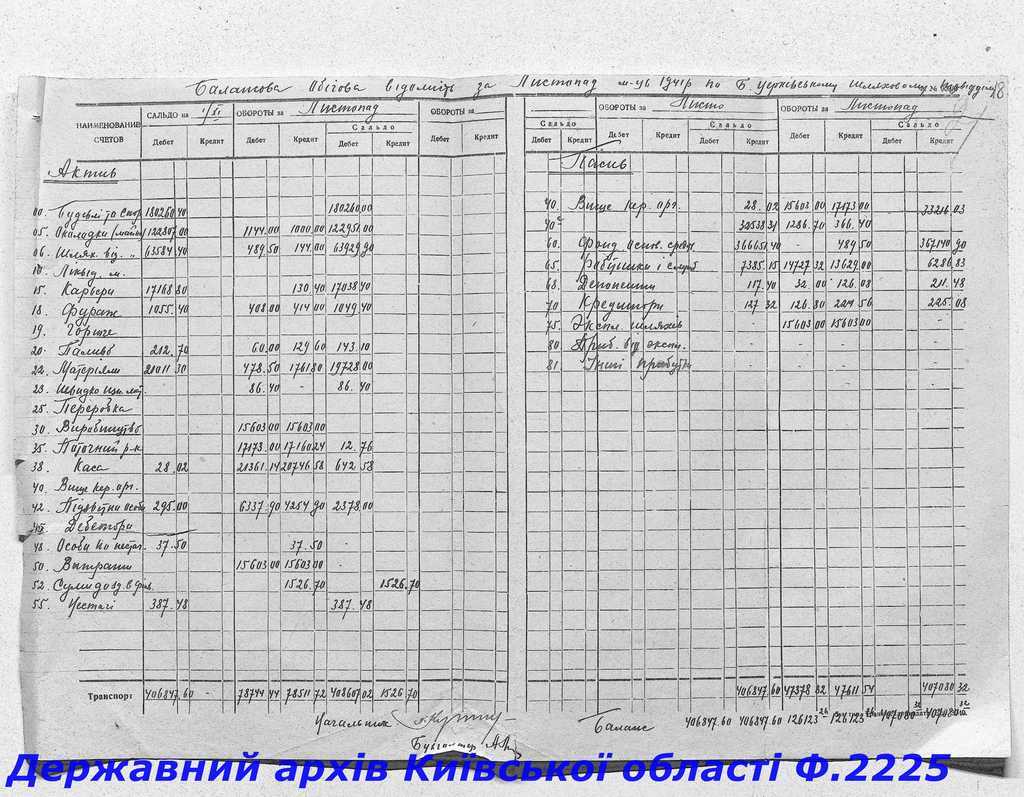 Балансова Обігова відомість за Листопад м-ць 1941р по Б. Церківському шляховому
НАИМЕНОВАНИЕ СЧЕТОВ САЛЬДО на 1/XI ОБОРОТЫ за Листопад ОБОРОТЫ за ОБОРОТЫ за Листо ОБОРОТЫ за Листопад
Сальдо Сальдо Сальдо Сальдо
Дебет Кредит Дебет Кредит Дебет Кредит Дебет Кредит Дебет Кредит Дебет Кредит Дебет Кредит Дебет Кредит Дебет Кредит
Актив
00. Будівлі та Спор 180260.40 180260.00
05. Окладки (майно) 122807.00 1144.00 1000.00 122951.00
06. Шлях. від. „ 63584.40 489.50 144.00 63929.90
10. Ліквід. м.
15. Карьери 17168.80 130.40 17038.40
18. Фураж 1055.40 408.00 414.00 1049.40
19. Горюче
20. Паливо 212.70 60.00 129.60 143.10
22. Матеріяли 21011.30 478.50 1761.80 19728.00
23. Швидко 86.40 - 86.40
25. Переробка
30. Виробництво 15603.00 15603.00
35. Поточний р-к 17173.00 17160.24 12.76
38. Каса 28.02 21361.14 20746.58 642.58
40. Вище кер. орг.
42. Підзвітна особи 295.00 6337.90 4254.90 2378.00
Дебетори
48. Особи по нестач. 37.50 37.50 -
50. Витрати 15603.00 15603.00
52. Суми до 1526.70 1526.70
55. Нестачі 387.48 387.48
Транспорт 406847.60 - 78744.44 78511.72 408607.02 1526.70
Пасив
40. Вище кер. орг. 28.02 15603.00 17173.00 33216.03
40а 32538.31 1286.70 366.40
60. Фонд основ. средс 366651.40 - 489.50 367140.90
65. Робітники і служб 7385.15 14727.32 13629.00 6286.83
68. Депоненти 117.40 32.00 126.08 211.48
70. Кредитори 127.32 126.80 224.56 225.08
75. Экспл. шляхів - 15603.00 15603.00 -
80. Приб. від экспл. - - - -
81. Інші прибутки - - - -
406847.60 47378.82 47611.54 407080.32
Баланс 406847.60 406847.60 126123.26 126123.26 407080.32 407080.32
Начальник
Бухгалтер
Державний архів Київської області Ф.2225